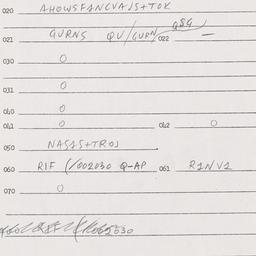 020 AHOWSFANCVAJS+TOK
021 GURNS QU/GURN 022 984 —
030 O
031 O
040 O
041 O 042 O
050 NASAS+TROJ
060 RIF (/002030 Q-AP 061 R2NV2
070 O
002030